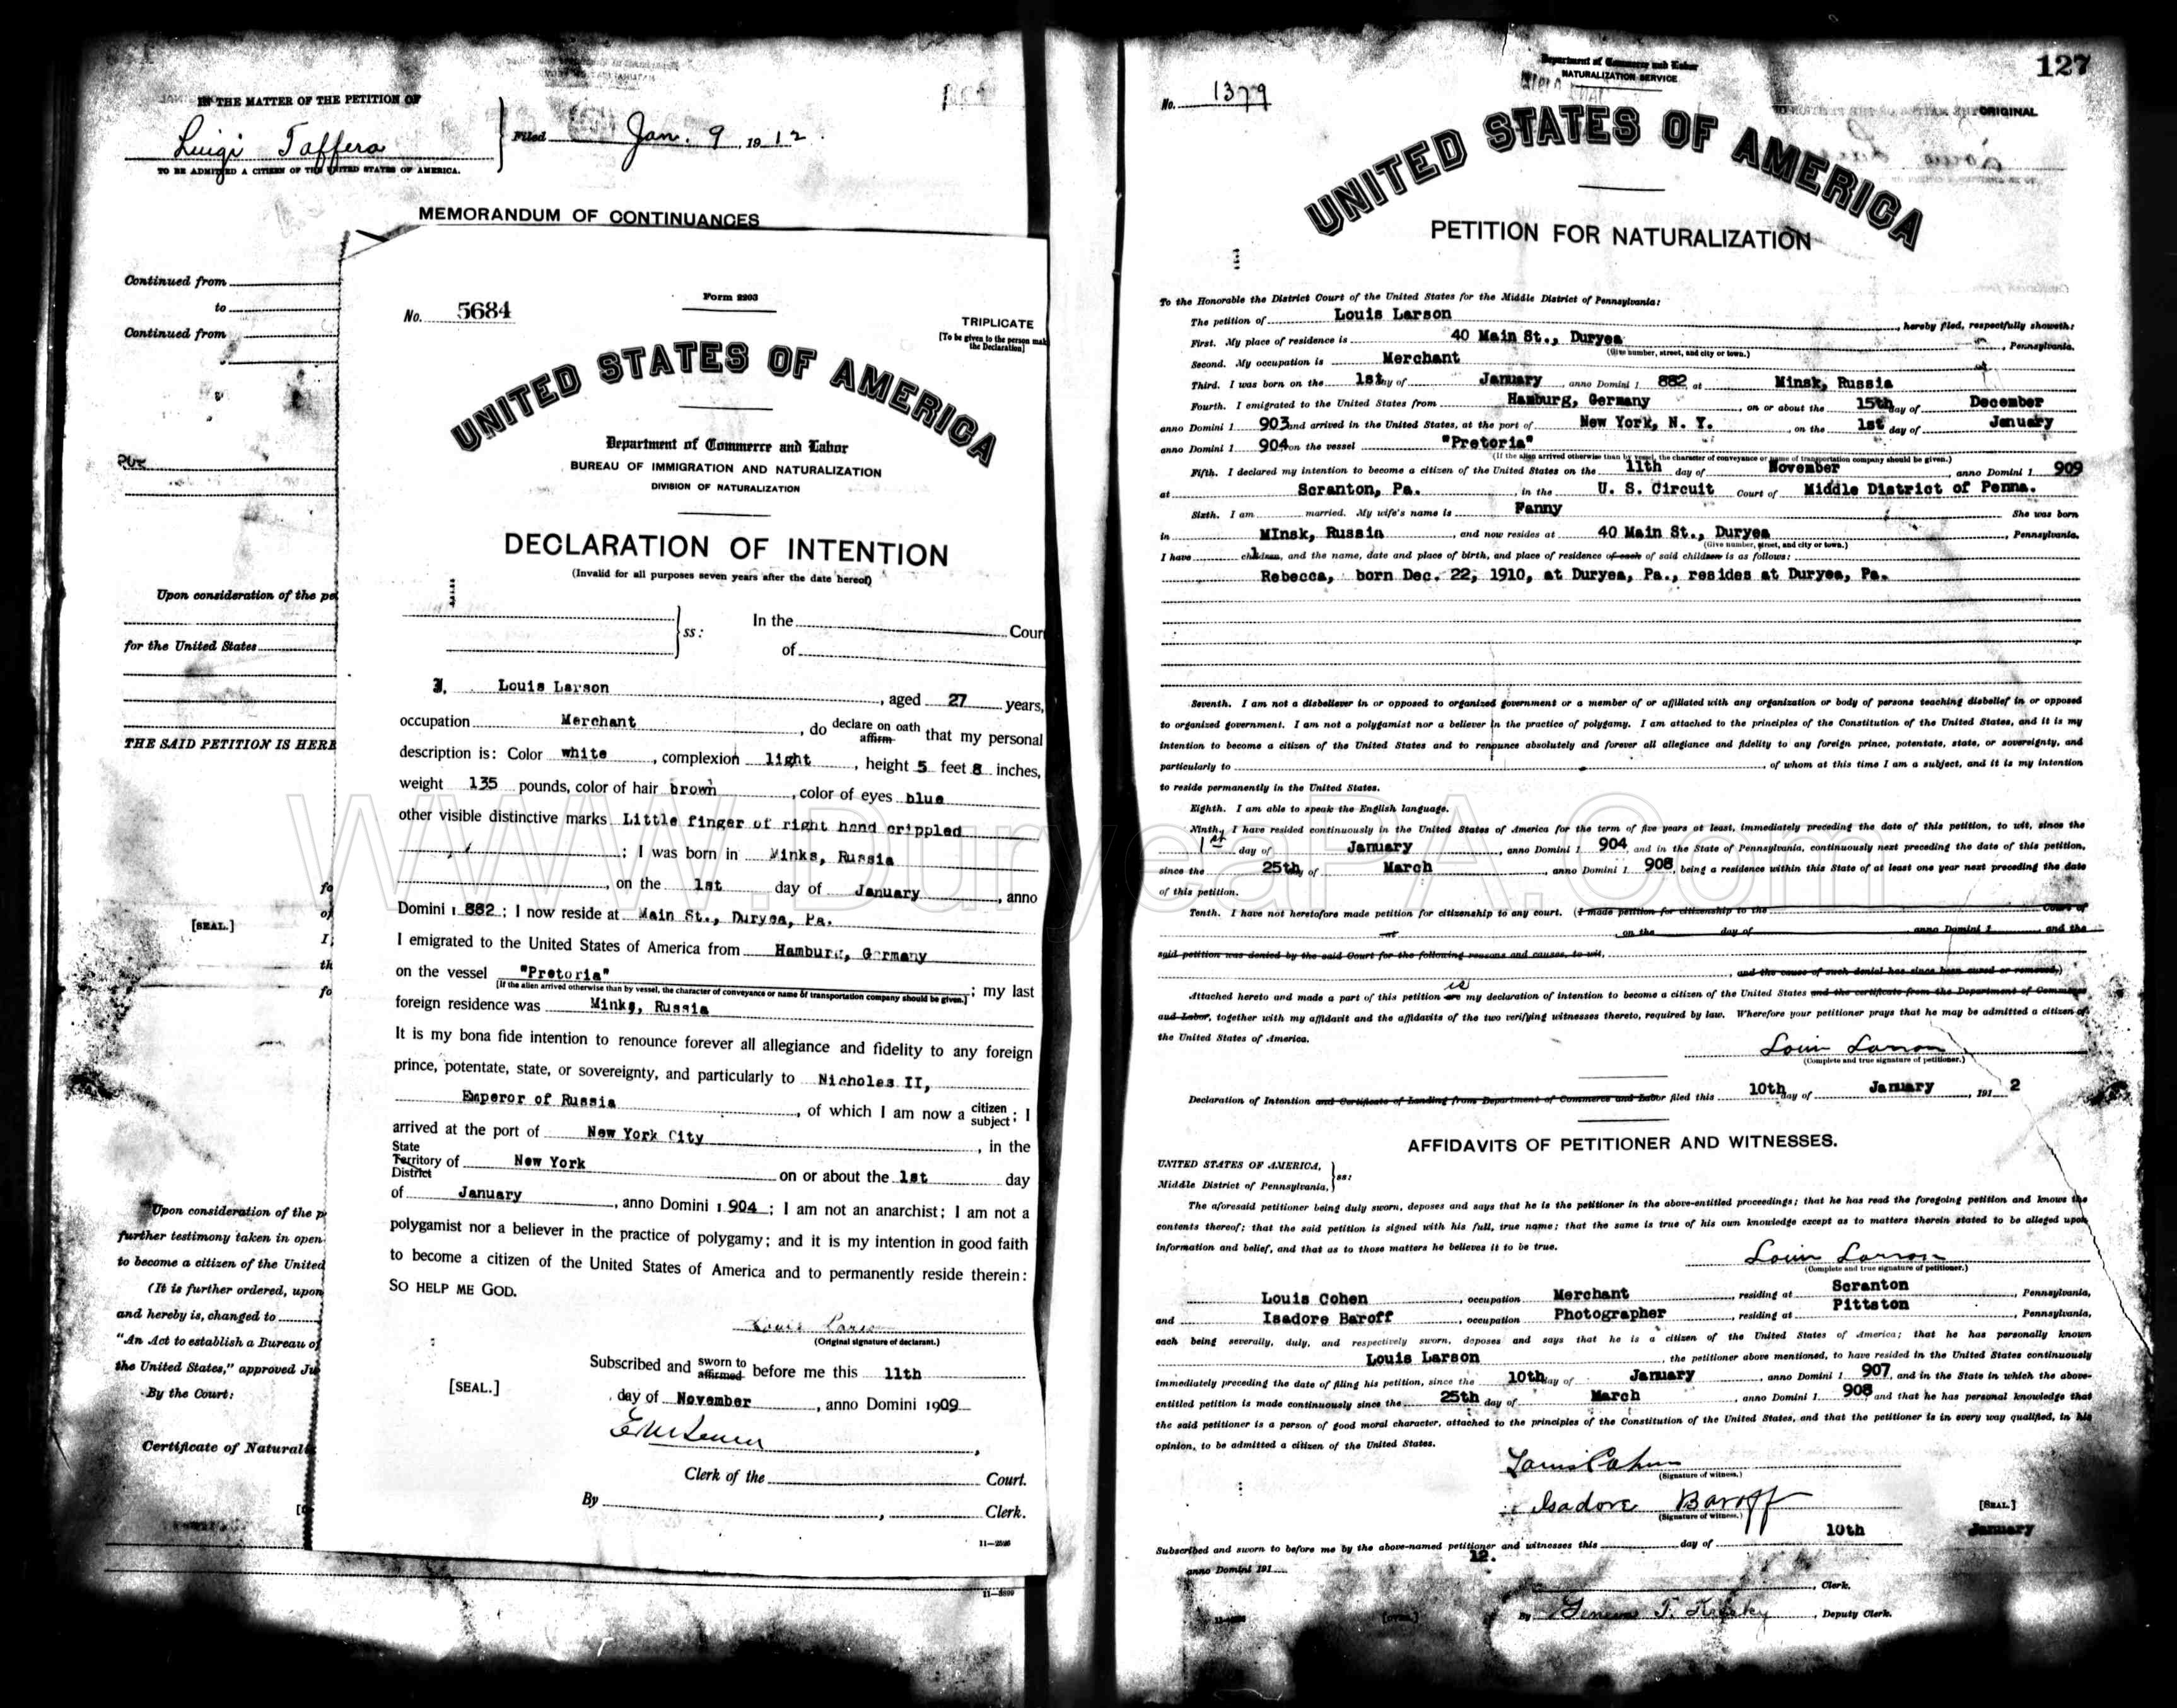 IN THE MATTER OF THE PETITION OF
Luigi Taffera
TO BE ADMITTED A CITIZEN OF THE UNITED STATES OF AMERICA.
Filed Jan. 9, 1912.
MEMORANDUM OF CONTINUANCES
Continued from
to
Continued from
Upon consideration of the pe
for the United States
THE SAID PETITION IS HERE
fo
of
[SEAL.] I,
th
fo
Upon consideration of the p
further testimony taken in open
to become a citizen of the United
(It is further ordered, upon
and hereby is, changed to
"An Act to establish a Bureau of
the United States," approved Ju
By the Court:
Certificate of Natural
11—3899
Form 2203
No. 5684
TRIPLICATE
[To be given to the person mak
the Declaration]
UNITED STATES OF AMERICA
Department of Commerce and Labor
BUREAU OF IMMIGRATION AND NATURALIZATION
DIVISION OF NATURALIZATION
DECLARATION OF INTENTION
(Invalid for all purposes seven years after the date hereof)
ss: In the Cour
of
I, Louis Larson, aged 27 years,
occupation Merchant, do declare on oath affirm that my personal
description is: Color white, complexion light, height 5 feet 8 inches,
weight 135 pounds, color of hair brown, color of eyes blue
other visible distinctive marks Little finger of right hand crippled
; I was born in Minks, Russia
, on the 1st day of January, anno
Domini 1 882; I now reside at Main St., Duryea, Pa.
I emigrated to the United States of America from Hamburg, Germany
on the vessel "Pretoria"; my last
[If the alien arrived otherwise than by vessel, the character of conveyance or name of transportation company should be given.]
foreign residence was Minks, Russia
It is my bona fide intention to renounce forever all allegiance and fidelity to any foreign
prince, potentate, state, or sovereignty, and particularly to Nicholas II,
Emperor of Russia, of which I am now a citizen subject; I
arrived at the port of New York City, in the
State Territory District of New York on or about the 1st day
of January, anno Domini 1 904; I am not an anarchist; I am not a
polygamist nor a believer in the practice of polygamy; and it is my intention in good faith
to become a citizen of the United States of America and to permanently reside therein:
SO HELP ME GOD.
Louis Larson
(Original signature of declarant.)
Subscribed and sworn to affirmed before me this 11th
[SEAL.] day of November, anno Domini 1909
Clerk of the Court.
By , Clerk.
11—2526
127
Department of Commerce and Labor
NATURALIZATION SERVICE
No. 1379
ORIGINAL
UNITED STATES OF AMERICA
PETITION FOR NATURALIZATION
To the Honorable the District Court of the United States for the Middle District of Pennsylvania:
The petition of Louis Larson, hereby filed, respectfully showeth:
First. My place of residence is 40 Main St., Duryea, Pennsylvania.
(Give number, street, and city or town.)
Second. My occupation is Merchant
Third. I was born on the 1st day of January, anno Domini 1 882, at Minsk, Russia
Fourth. I emigrated to the United States from Hamburg, Germany, on or about the 15th day of December
anno Domini 1 903 and arrived in the United States, at the port of New York, N. Y., on the 1st day of January
anno Domini 1 904 on the vessel "Pretoria"
(If the alien arrived otherwise than by vessel, the character of conveyance or name of transportation company should be given.)
Fifth. I declared my intention to become a citizen of the United States on the 11th day of November, anno Domini 1 909
at Scranton, Pa., in the U. S. Circuit Court of Middle District of Penna.
Sixth. I am married. My wife's name is Fanny She was born
in MInsk, Russia, and now resides at 40 Main St., Duryea, Pennsylvania.
(Give number, street, and city or town.)
I have 1 children, and the name, date and place of birth, and place of residence of each of said children is as follows:
Rebecca, born Dec. 22, 1910, at Duryea, Pa., resides at Duryea, Pa.
Seventh. I am not a disbeliever in or opposed to organized government or a member of or affiliated with any organization or body of persons teaching disbelief in or opposed
to organized government. I am not a polygamist nor a believer in the practice of polygamy. I am attached to the principles of the Constitution of the United States, and it is my
intention to become a citizen of the United States and to renounce absolutely and forever all allegiance and fidelity to any foreign prince, potentate, state, or sovereignty, and
particularly to , of whom at this time I am a subject, and it is my intention
to reside permanently in the United States.
Eighth. I am able to speak the English language.
Ninth. I have resided continuously in the United States of America for the term of five years at least, immediately preceding the date of this petition, to wit, since the
1st day of January, anno Domini 1 904, and in the State of Pennsylvania, continuously next preceding the date of this petition,
since the 25th day of March, anno Domini 1 908, being a residence within this State of at least one year next preceding the date
of this petition.
Tenth. I have not heretofore made petition for citizenship to any court. (I made petition for citizenship to the Court of
at , on the day of , anno Domini 1 and the
said petition was denied by the said Court for the following reasons and causes, to wit,
, and the cause of such denial has since been cured or removed.)
Attached hereto and made a part of this petition are is my declaration of intention to become a citizen of the United States and the certificate from the Department of Commerce
and Labor, together with my affidavit and the affidavits of the two verifying witnesses thereto, required by law. Wherefore your petitioner prays that he may be admitted a citizen of
the United States of America.
Louis Larson
(Complete and true signature of petitioner.)
Declaration of Intention and Certificate of Landing from Department of Commerce and Labor filed this 10th day of January, 191 2
AFFIDAVITS OF PETITIONER AND WITNESSES.
UNITED STATES OF AMERICA,
Middle District of Pennsylvania, ss:
The aforesaid petitioner being duly sworn, deposes and says that he is the petitioner in the above-entitled proceedings; that he has read the foregoing petition and knows the
contents thereof; that the said petition is signed with his full, true name; that the same is true of his own knowledge except as to matters therein stated to be alleged upon
information and belief, and that as to those matters he believes it to be true.
Louis Larson
(Complete and true signature of petitioner.)
Louis Cohen, occupation Merchant, residing at Scranton, Pennsylvania,
and Isadore Baroff, occupation Photographer, residing at Pittston, Pennsylvania,
each being severally, duly, and respectively sworn, deposes and says that he is a citizen of the United States of America; that he has personally known
Louis Larson, the petitioner above mentioned, to have resided in the United States continuously
immediately preceding the date of filing his petition, since the 10th day of January, anno Domini 1 907, and in the State in which the above-
entitled petition is made continuously since the 25th day of March, anno Domini 1 908 and that he has personal knowledge that
the said petitioner is a person of good moral character, attached to the principles of the Constitution of the United States, and that the petitioner is in every way qualified, in his
opinion, to be admitted a citizen of the United States.
Louis Cohen
(Signature of witness.)
Isadore Baroff
(Signature of witness.)
[SEAL.]
Subscribed and sworn to before me by the above-named petitioner and witnesses this 10th day of January
anno Domini 191 12.
, Clerk.
By , Deputy Clerk.
[OVER.]
www.DuryeaPA.com